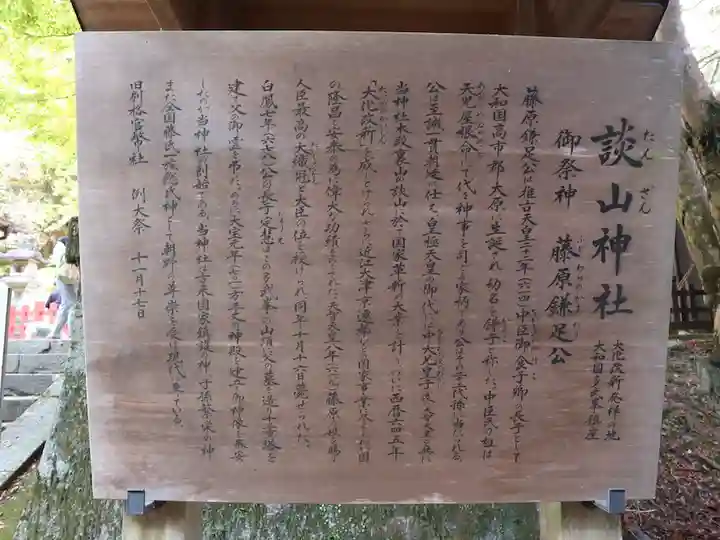 談山神社
たん ざん
大化改新発祥の地
大和国多武峯鎮座
御祭神 藤原鎌足公
藤原鎌足公は推古天皇二十二年(六一四)中臣御食子卿の長子として
大和国高市郡大原に生誕され、幼名を鎌子と称した。中臣氏の祖は
天児屋根命にして代々神事を司る家柄であり公はその二十二代孫に当られる。
公は至誠一貫朝廷に仕え、皇極天皇の御代に中大兄皇子(後の天智天皇)と共に
当神社本殿裏山の談山に於て国家革新の大業を計り、ついに西暦六四五年
「大化改新」を成しとげられ、さらに近江大津京遷都など国家事業に尽され、国
の隆昌と安泰の為に偉大な功績をたてられた。天智天皇八年(六六九)藤原の姓を賜り
人臣最高の大織冠と大臣の位を授けられ同年十月十六日薨ぜられた。
白鳳七年(六七八)公の長子定恵はこの多武峯の山頂に父の墓を造り十三重塔を
建て父の御霊を弔った。のちに大宝元年(七〇一)方三丈の神殿を建て、御神像を奉安
したのが当神社の創始である。当神社は古来国家鎮護の神、子孫繁栄の神
また全国藤氏一族総氏神として朝野の尊崇を受け現代に至っている。
旧別格官幣社 例大祭 十一月十七日